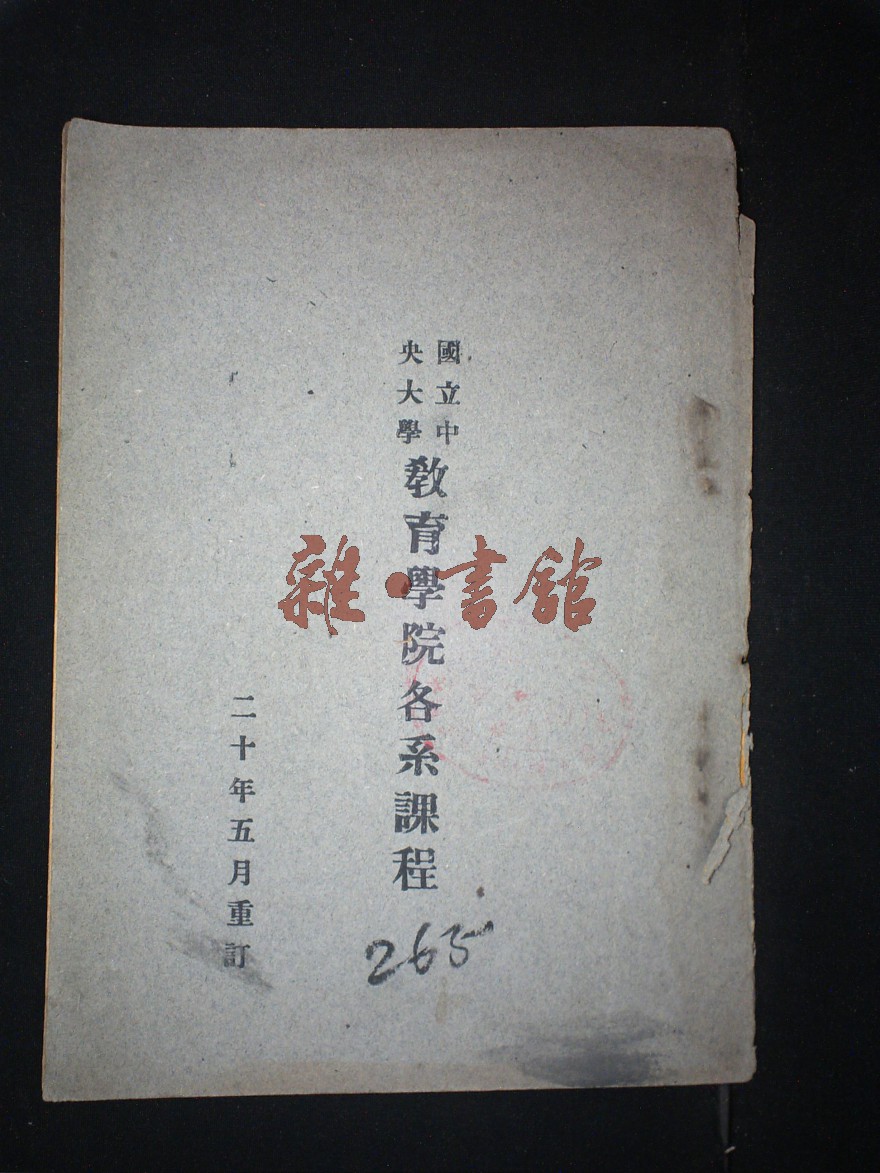 國立中
央大學
教育學院各系課程
二十年五月重訂
265
雜·書館